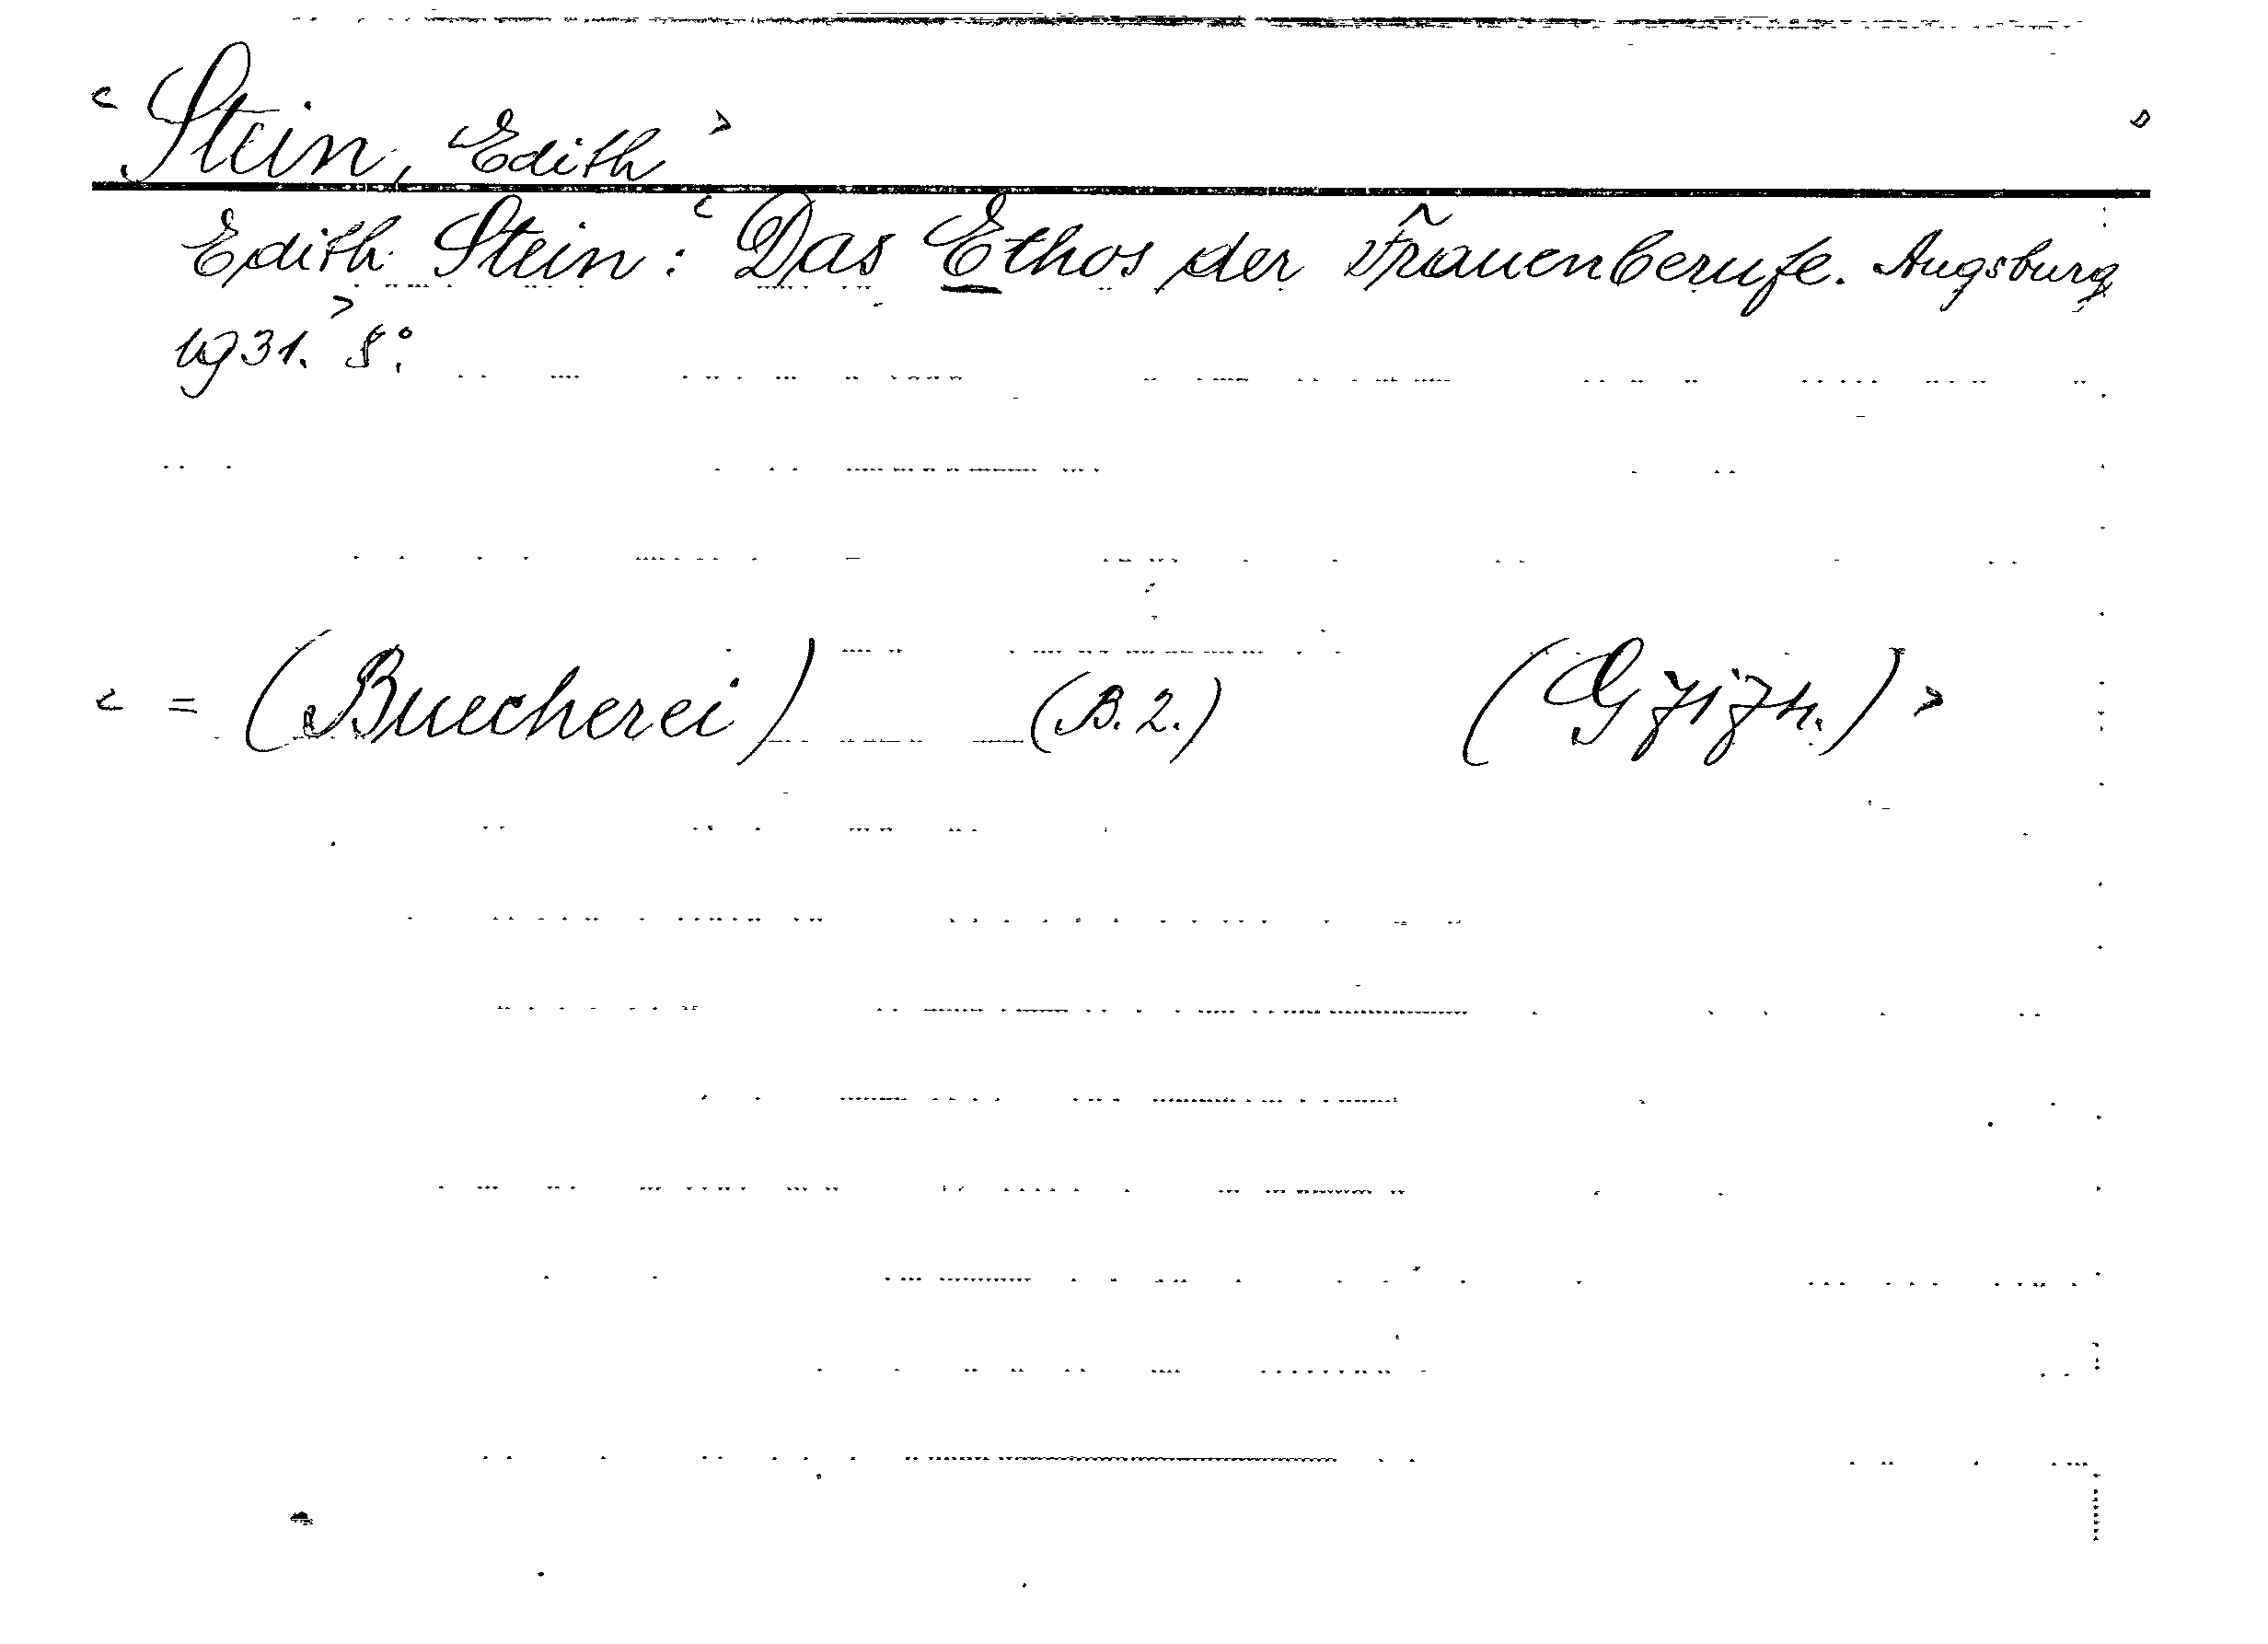 < Stein, Edith >
Edith Stein: < Das Ethos der Frauenberufe. Augsburg
1931. > 8°.
< = (Buecherei) (B. 2.) >